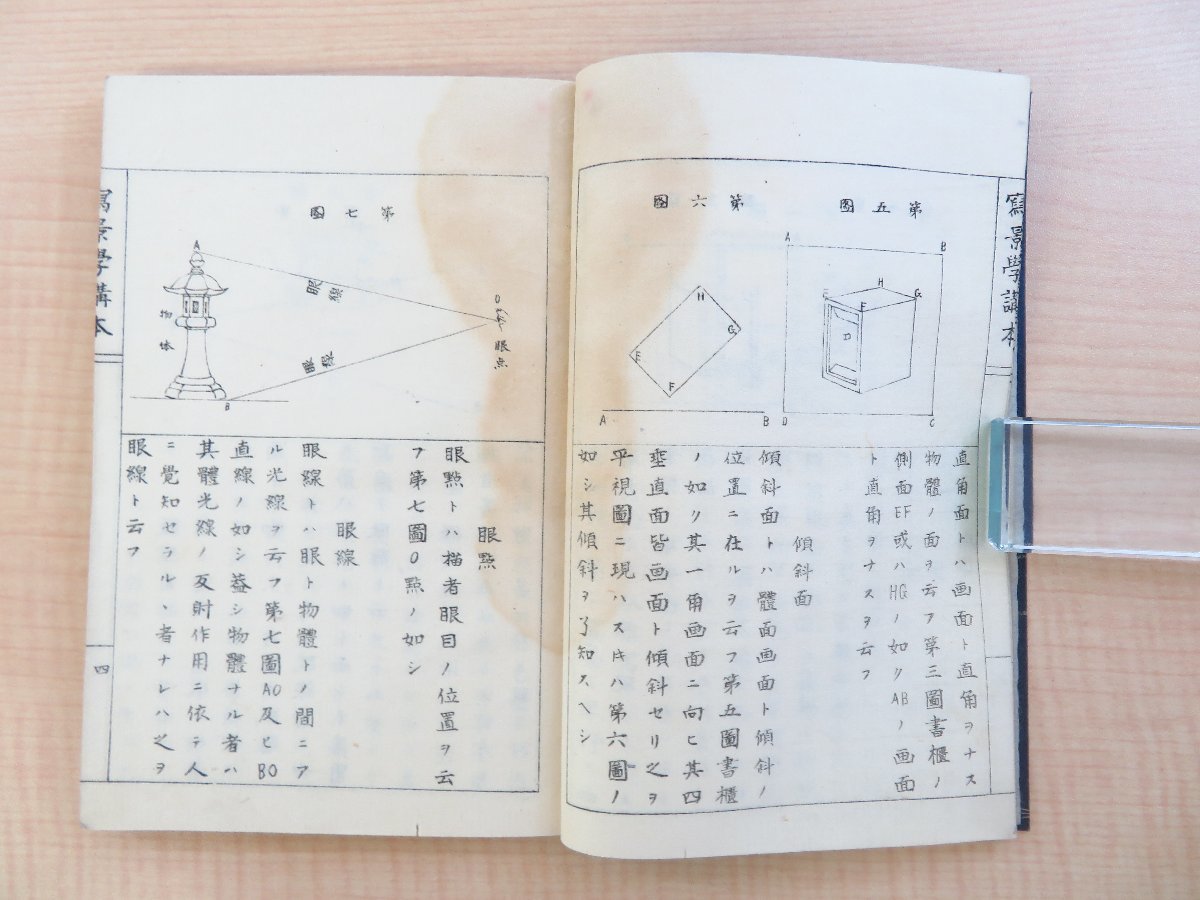 寫景學講本
第五圖
A
B
E
H
G
F
D
C
第六圖
H
G
E
F
A
B
直角面トハ画面ト直角ヲナス
物體ノ面ヲ云フ第三圖書櫃ノ
側面EF或ハHGノ如クABノ画面
ト直角ヲナスヲ云フ
傾斜面
傾斜面トハ體面画面ト傾斜ノ
位置ニ在ルヲ云フ第五圖書櫃
ノ如リ其一角画面ニ向ヒ其四
垂直面皆画面ト傾斜セリ之ヲ
平視圖ニ現ハス片ハ第六圖ノ
如シ其傾斜ヲ了知スヘシ
第七圖
A
眼線
O
眼点
物体
眼線
B
眼點
眼點トハ描者眼目ノ位置ヲ云
フ第七圖O點ノ如シ
眼線
眼線トハ眼ト物體トノ間ニア
ル光線ヲ云フ第七圖AO及ヒBO
直線ノ如シ蓋シ物體ナル者ハ
其體光線ノ反射作用ニ依テ人
ニ覺知セラルヽ者ナレハ之ヲ
眼線ト云フ
寫景學講本
四